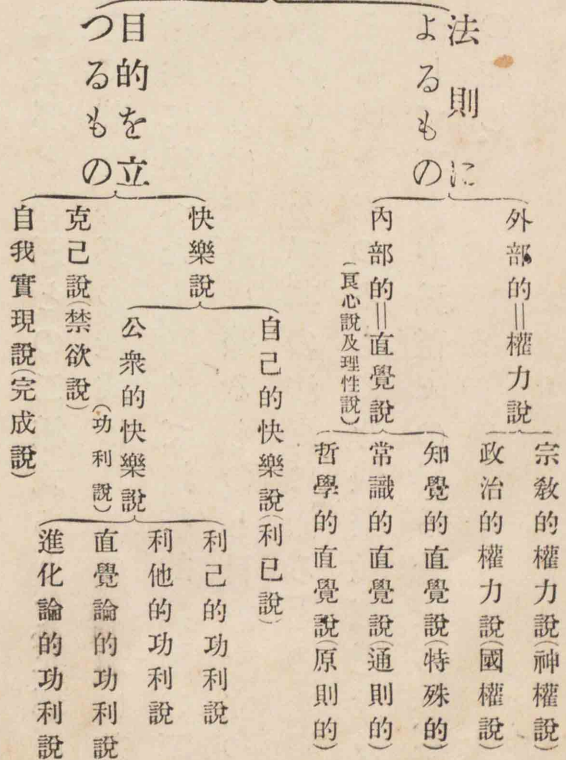 法則に
よるもの
外部的＝權力說
宗教的權力說(神權說)
政治的權力說(國權說)
內部的＝直覺說
(良心說及理性說)
知覺的直覺說(特殊的)
常識的直覺說(通則的)
哲學的直覺說(原則的)
目的を立
つるもの
快樂說
自己的快樂說(利已說)
公衆的快樂說
(功利說)
利己的功利說
利他的功利說
直覺論的功利說
進化論的功利說
克己說(禁欲說)
自我實現說(完成說)